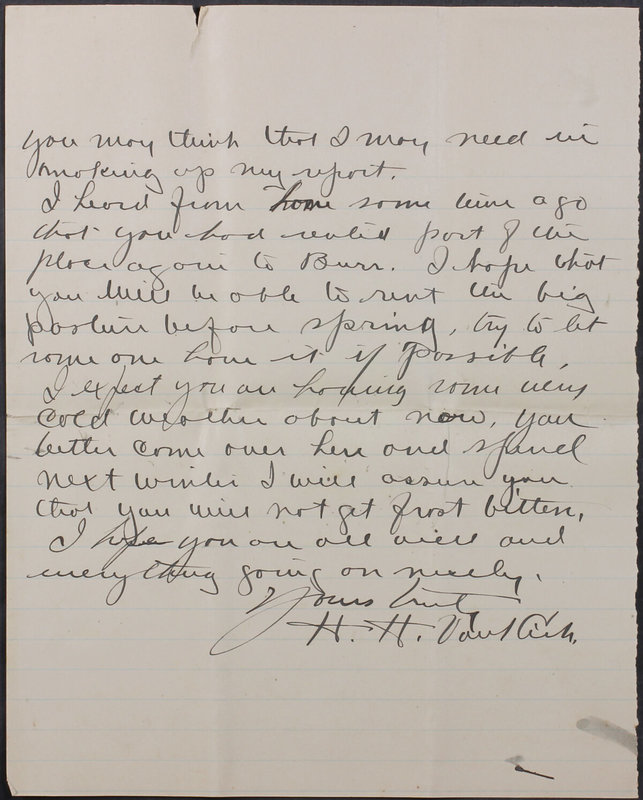 you may think that I may need in
making up my report.
I heard from home some time ago
that you had rented part of the
place again to Burr. I hope that
you will be able to rent the big
pasture before spring, try to let
some one have it if possible.
I expect you are having some very
cold weather about now, you
better come over here and spend
next winter I will assure you
that you will not get frost bitten.
I hope you are all well and
everything going on nicely.
Yours truly
H. H.